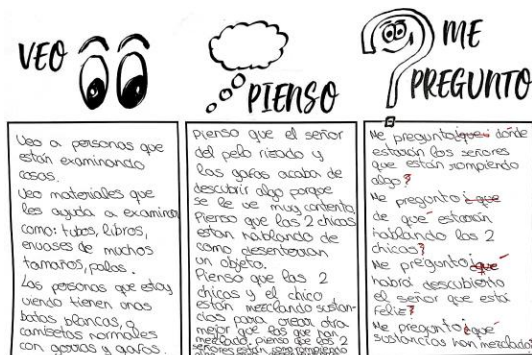 VEO
PIENSO
ME
PREGUNTO
Veo a personas que
están examinando
cosas.
Veo materiales que
les ayuda a examinar
como: tubos, libros,
envases de muchos
tamaños, palas.
Las personas que estoy
viendo tienen unas
batas blancas, o
camisetas normales
con gorras y gafas.
Pienso que el señor
del pelo rizado y
las gafas acaba de
descubrir algo porque
se le ve muy contento
Pienso que las 2 chicas
están hablando de
como desentierran
un objeto.
Pienso que las 2
chicas y el chico
están mezclando sustan-
cias para crear otra
mejor que las que han
mezclado, pienso que los 2
señores están
Me pregunto ¿que dónde
estarán los señores
que están rompiendo
algo?
Me pregunto ¿que
de qué estarán
hablando las 2
chicas?
Me pregunto ¿qué
habrá descubierto
el señor que está
feliz?
Me pregunto ¿qué
sustancias han mezclado